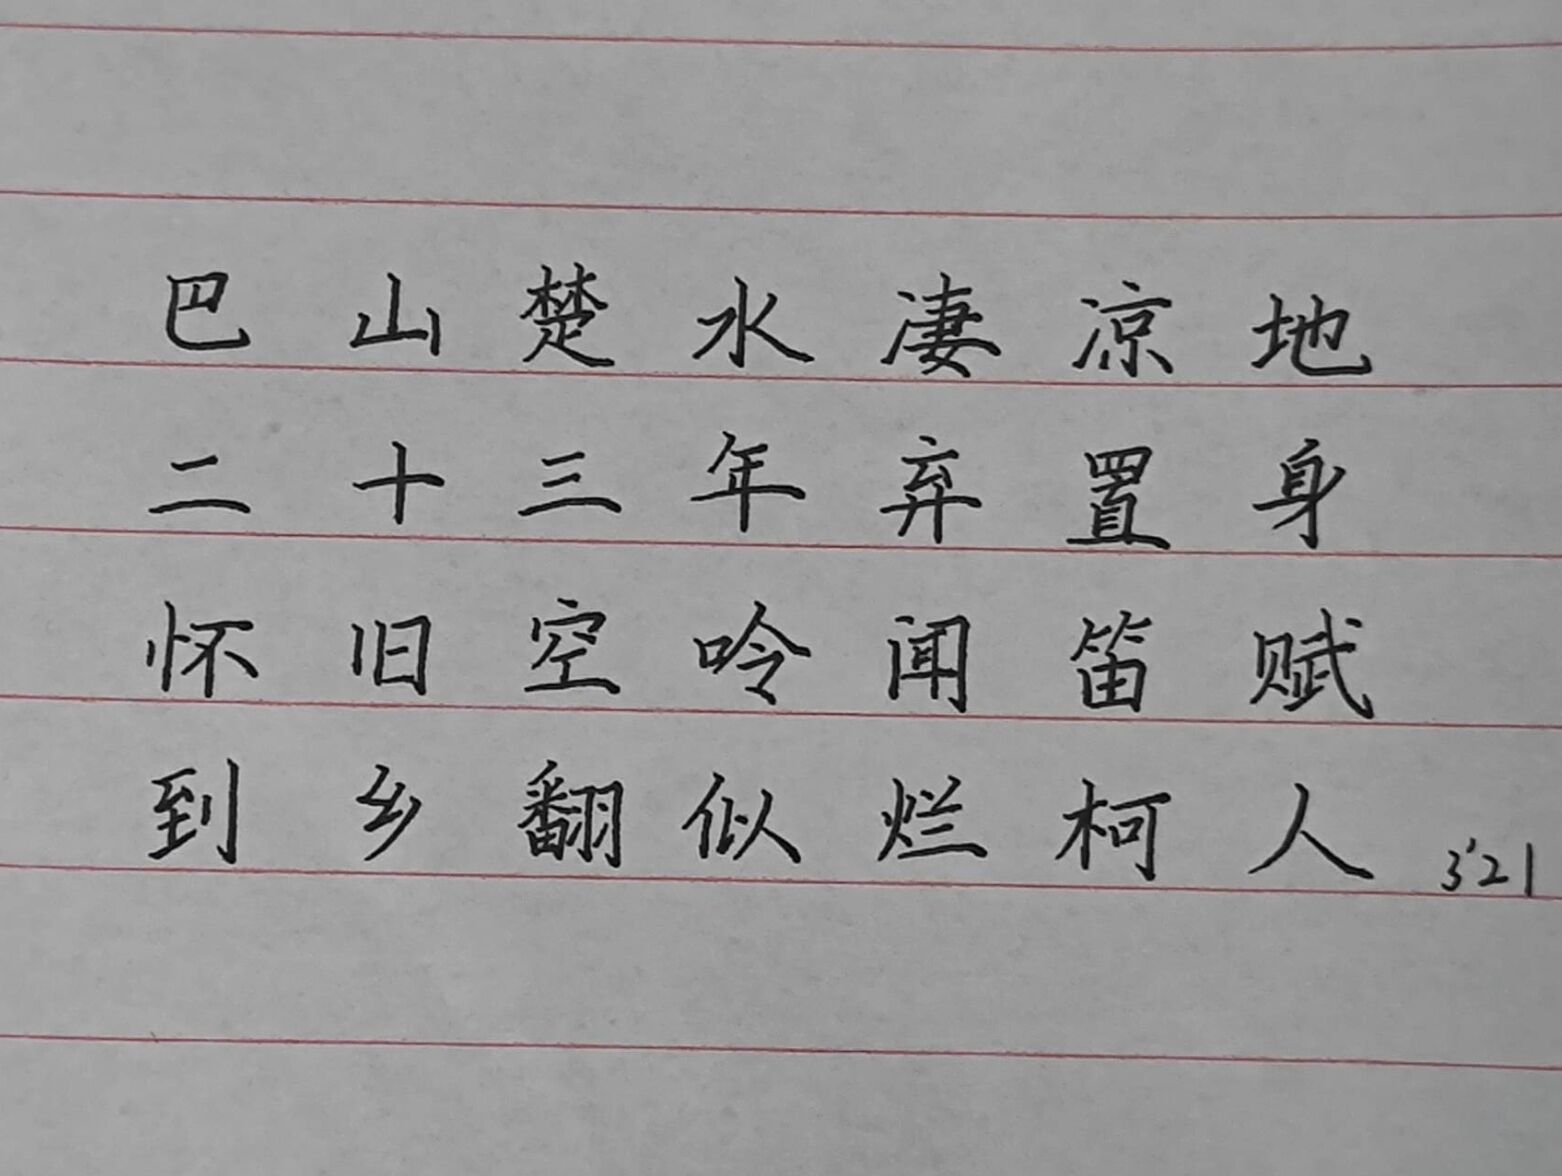 巴山楚水凄凉地
二十三年弃置身
怀旧空吟闻笛赋
到乡翻似烂柯人 3'21